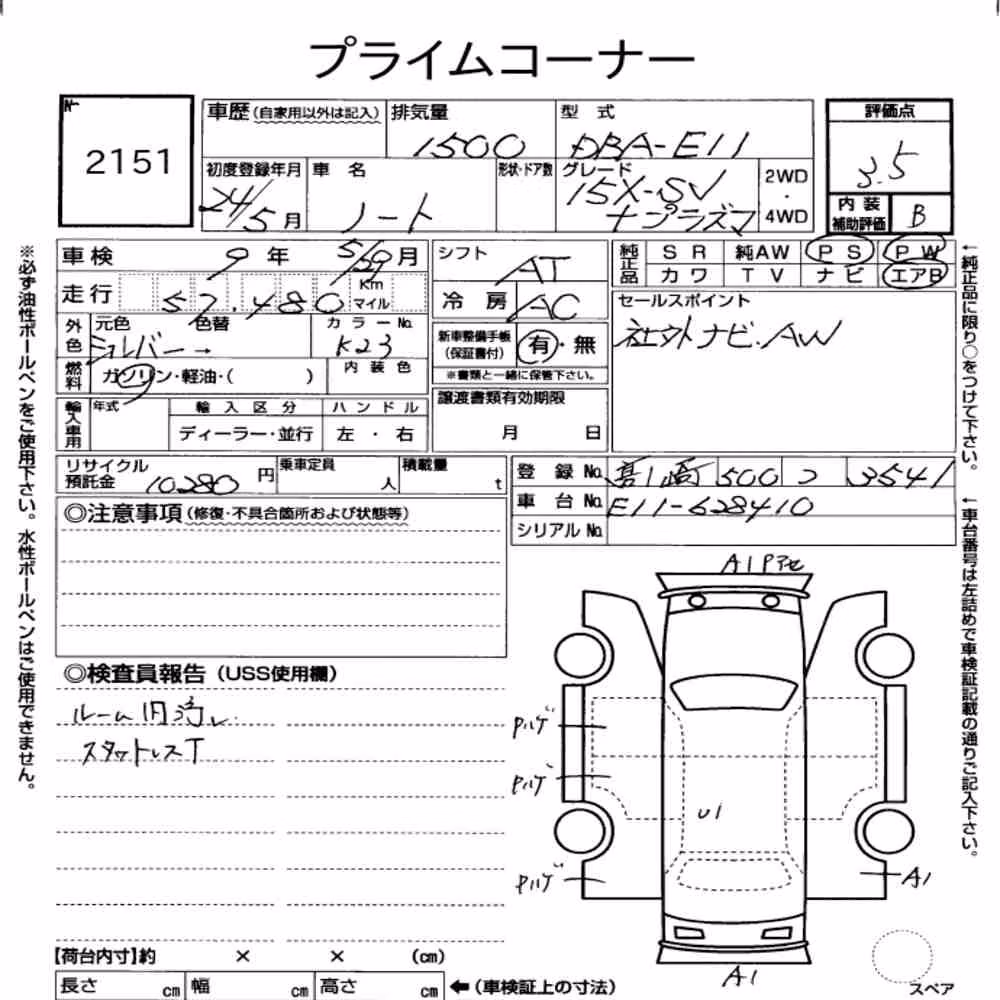 プライムコーナー
2151
車歴(自家用以外は記入) 排気量 型式 評価点
1500 DBA-E11
3.5
初度登録年月 車名 形状・ドア数 グレード 2WD・4WD
24/5月 ノート 15X-SV
+プラズマ
内装補助評価 B
車検 9年 5/29月 シフト AT
純正品 SR 純AW PS PW
カワ TV ナビ エアB
走行 57,480 Km マイル 冷房 AC
セールスポイント
社外ナビ.AW
外色 元色 色替 カラーNo.
シルバー→ K23
新車整備手帳(保証書付) 有・無
※書類と一緒に保管下さい。
燃料 ガソリン・軽油・( ) 内装色
譲渡書類有効期限
月 日
輸入車用 年式 輸入区分 ハンドル
ディーラー・並行 左・右
リサイクル預託金 10280円 乗車定員 人 積載量 t
登録No. 高崎 500 3541
車台No. E11-628410
シリアルNo.
◎注意事項(修復・不具合箇所および状態等)
◎検査員報告(USS使用欄)
スタットレスT
A1
U1
A1
A1
スペア
【荷台内寸】約 × × (cm)
長さ cm 幅 cm 高さ cm ←(車検証上の寸法)
※必ず油性ボールペンをご使用下さい。水性ボールペンはご使用できません。
←純正品に限り○をつけて下さい。
←車台番号は左詰めで車検証記載の通りご記入下さい。